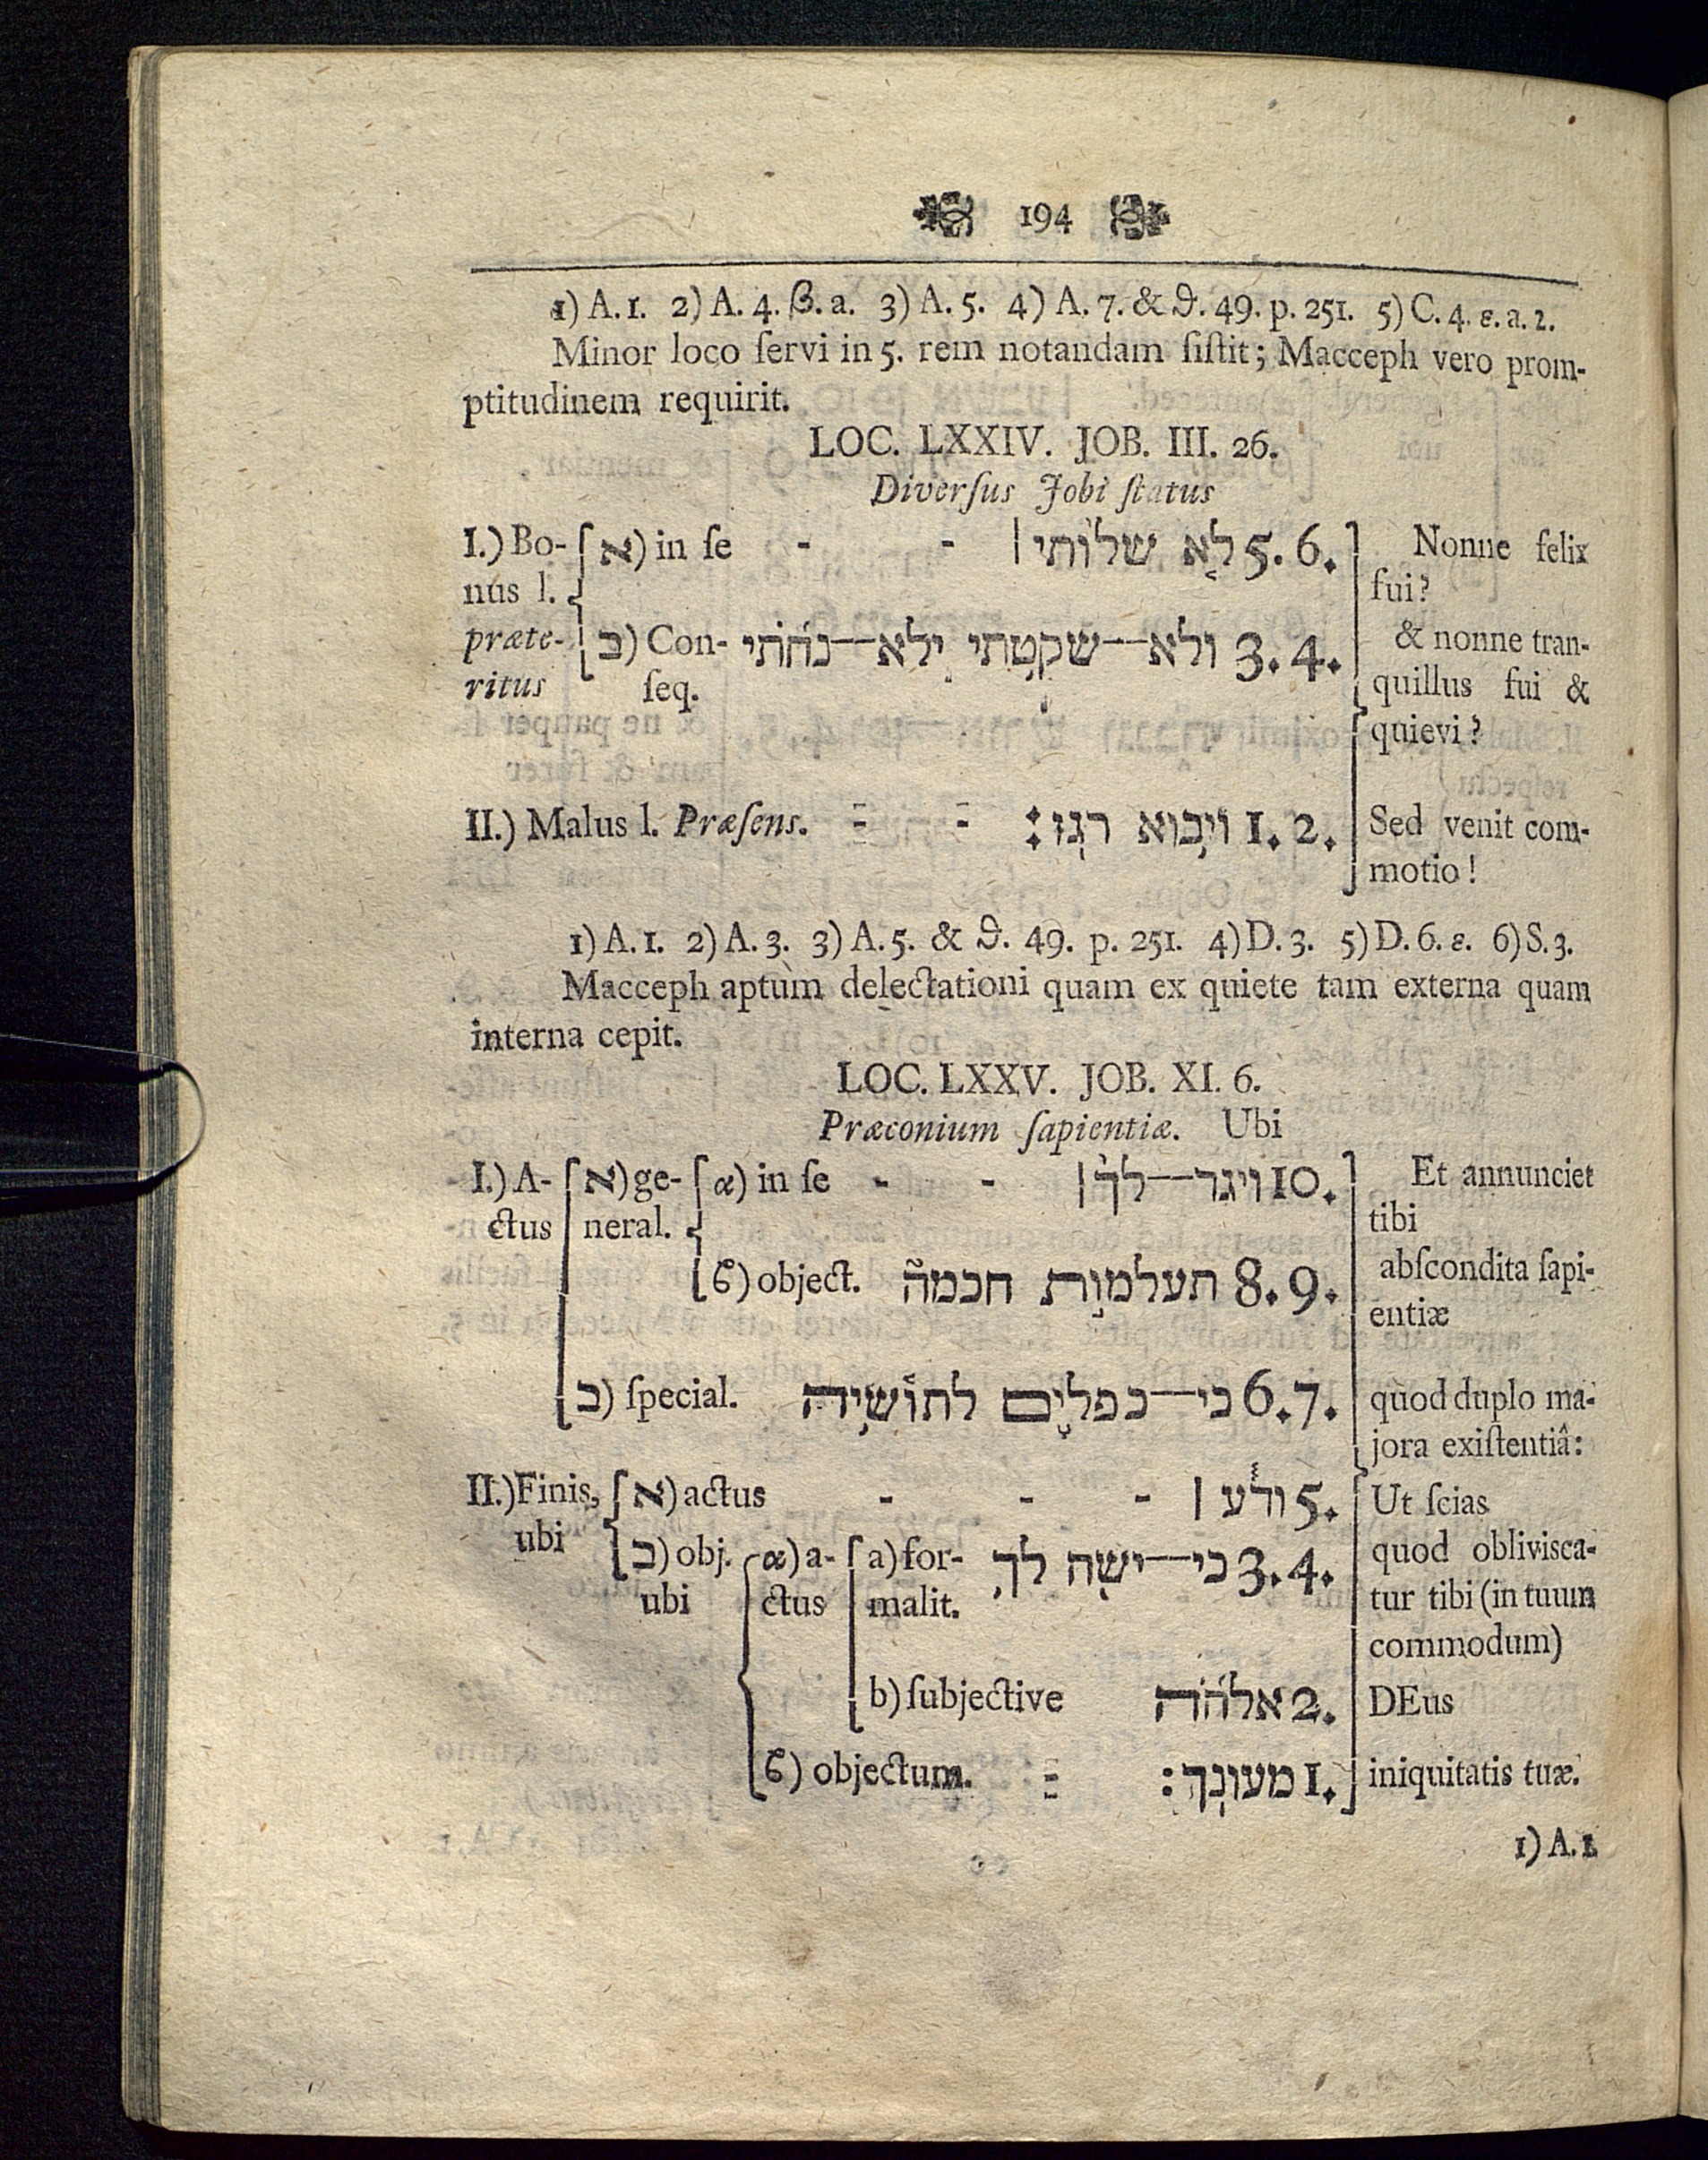 194
1) A. 1. 2) A. 4. β. a. 3) A. 5. 4) A. 7. & ϑ. 49. p. 251. 5) C. 4. ε. a. 2.
Minor loco ſervi in 5. rem notandam ſiſtit; Macceph vero prom-
ptitudinem requirit.
LOC. LXXIV. JOB. III. 26.
Diverſus Jobi ſtatus
I.) Bo- א) in ſe - - 5. 6. לא שלותי | Nonne felix
nus l. fui?
præte- ב) Con- 3. 4. ולא—שקטתי ולא—נחתי & nonne tran-
ritus ſeq. quillus fui &
quievi?
II.) Malus l. Præſens. - - 1. 2. ויבוא רגז: Sed venit com-
motio!
1) A. 1. 2) A. 3. 3) A. 5. & ϑ. 49. p. 251. 4) D. 3. 5) D. 6. ε. 6) S. 3.
Macceph aptum delectationi quam ex quiete tam externa quam
interna cepit.
LOC. LXXV. JOB. XI. 6.
Præconium ſapientiæ. Ubi
I.) A- א) ge- α) in ſe - - 10. ויגד—לך | Et annunciet
ctus neral. tibi
ϐ) object. 8. 9. תעלמות חכמה abſcondita ſapi-
entiæ
ב) ſpecial. 6. 7. כי—כפלים לתושיה quod duplo ma-
jora exiſtentiâ:
II.) Finis, א) actus - - - 5. ודע | Ut ſcias
ubi ב) obj. α) a- a) for- 3. 4. כי—ישה לך quod oblivisca-
ubi ctus malit. tur tibi (in tuum
commodum)
b) ſubjective 2. אלוה DEus
ϐ) objectum. - 1. מעונך: iniquitatis tuæ.
1) A. 1.